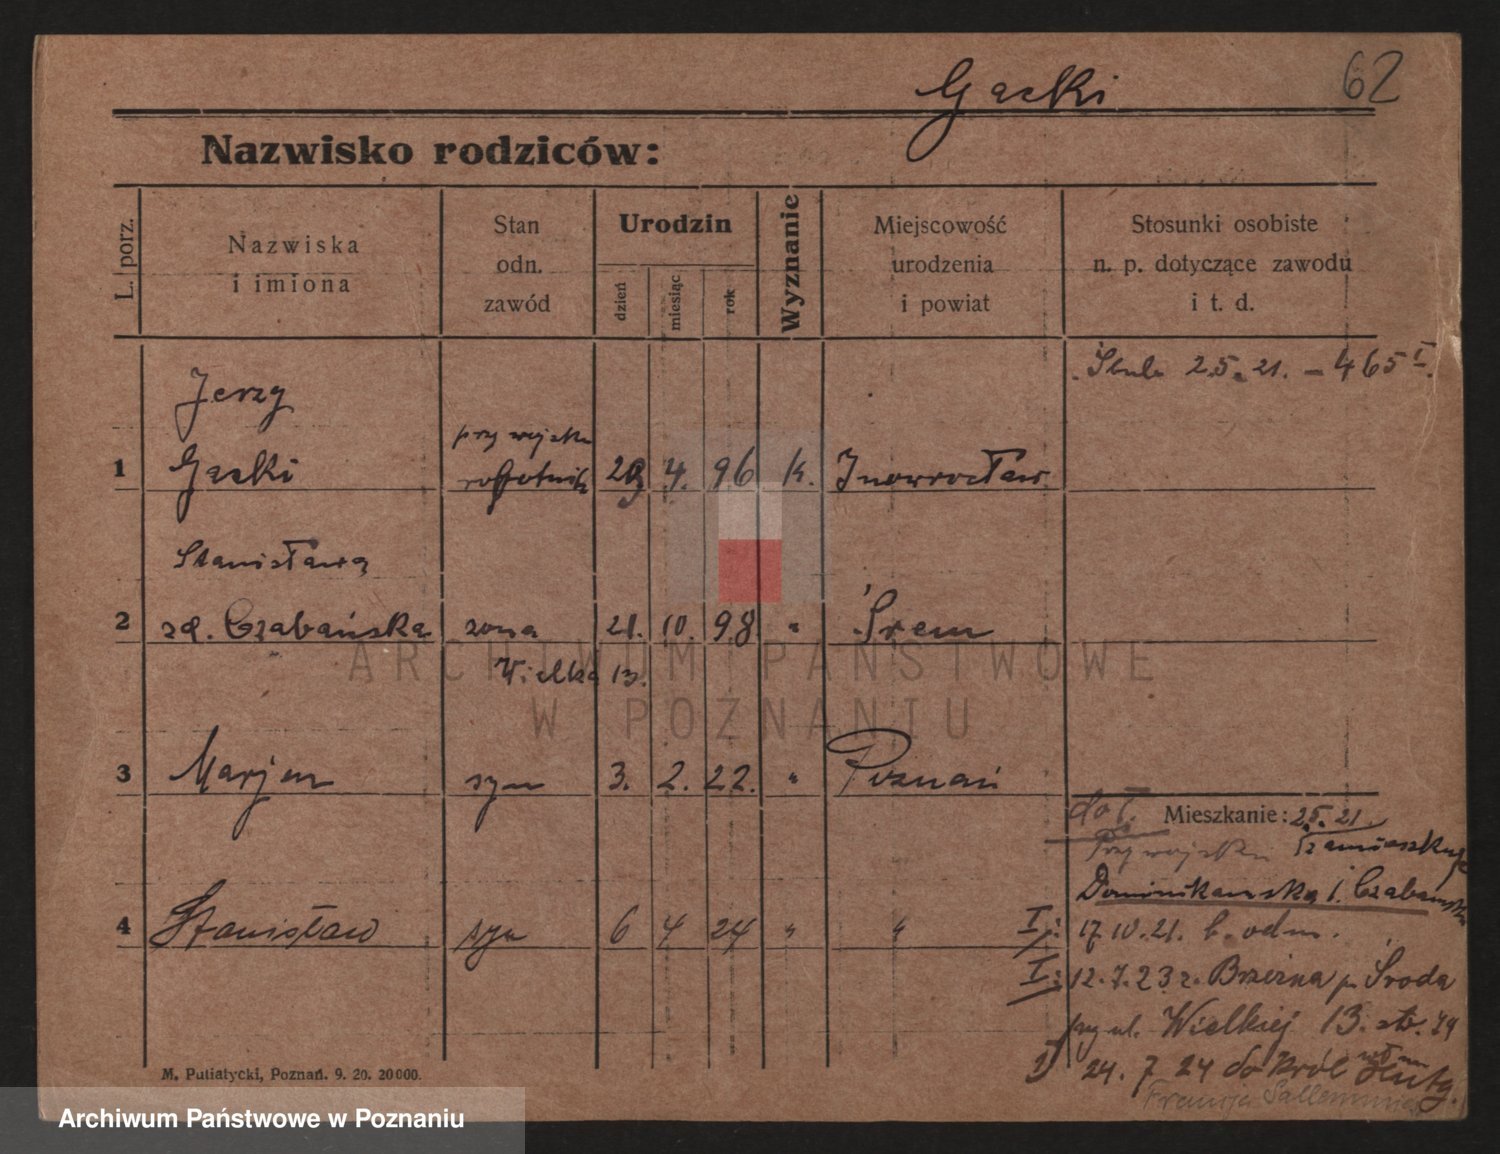 62
Gacki
Nazwisko rodziców:
L. porz.
Nazwiska
i imiona
Stan
odn.
zawód
Urodzin
dzień
miesiąc
rok
Wyznanie
Miejscowość
urodzenia
i powiat
Stosunki osobiste
n. p. dotyczące zawodu
i t. d.
2.5.21. – 465 I.
Jerzy
przy wojsku
1 Gacki robotnik 29 4. 96 k. Inowrocław
Stanisława
2 zd. Czabańska żona 21. 10. 98 " Śrem
Wielka 13.
3 Marjan syn 3. 2. 22. " Poznań
4 Stanisław syn 6 4 24 " "
Mieszkanie: 2.5.21.
Przy wojsku
Dominikańska 1. Czabańska
I: 17.10.21. b. odm.
I: 12.7.23 z. p. Środa
przy ul. Wielkiej 13.
I) 24. 7 24 do Król Huty.
Francja
M. Putiatycki, Poznań. 9. 20. 20000.
ARCHIWUM PAŃSTWOWE
W POZNANIU
Archiwum Państwowe w Poznaniu